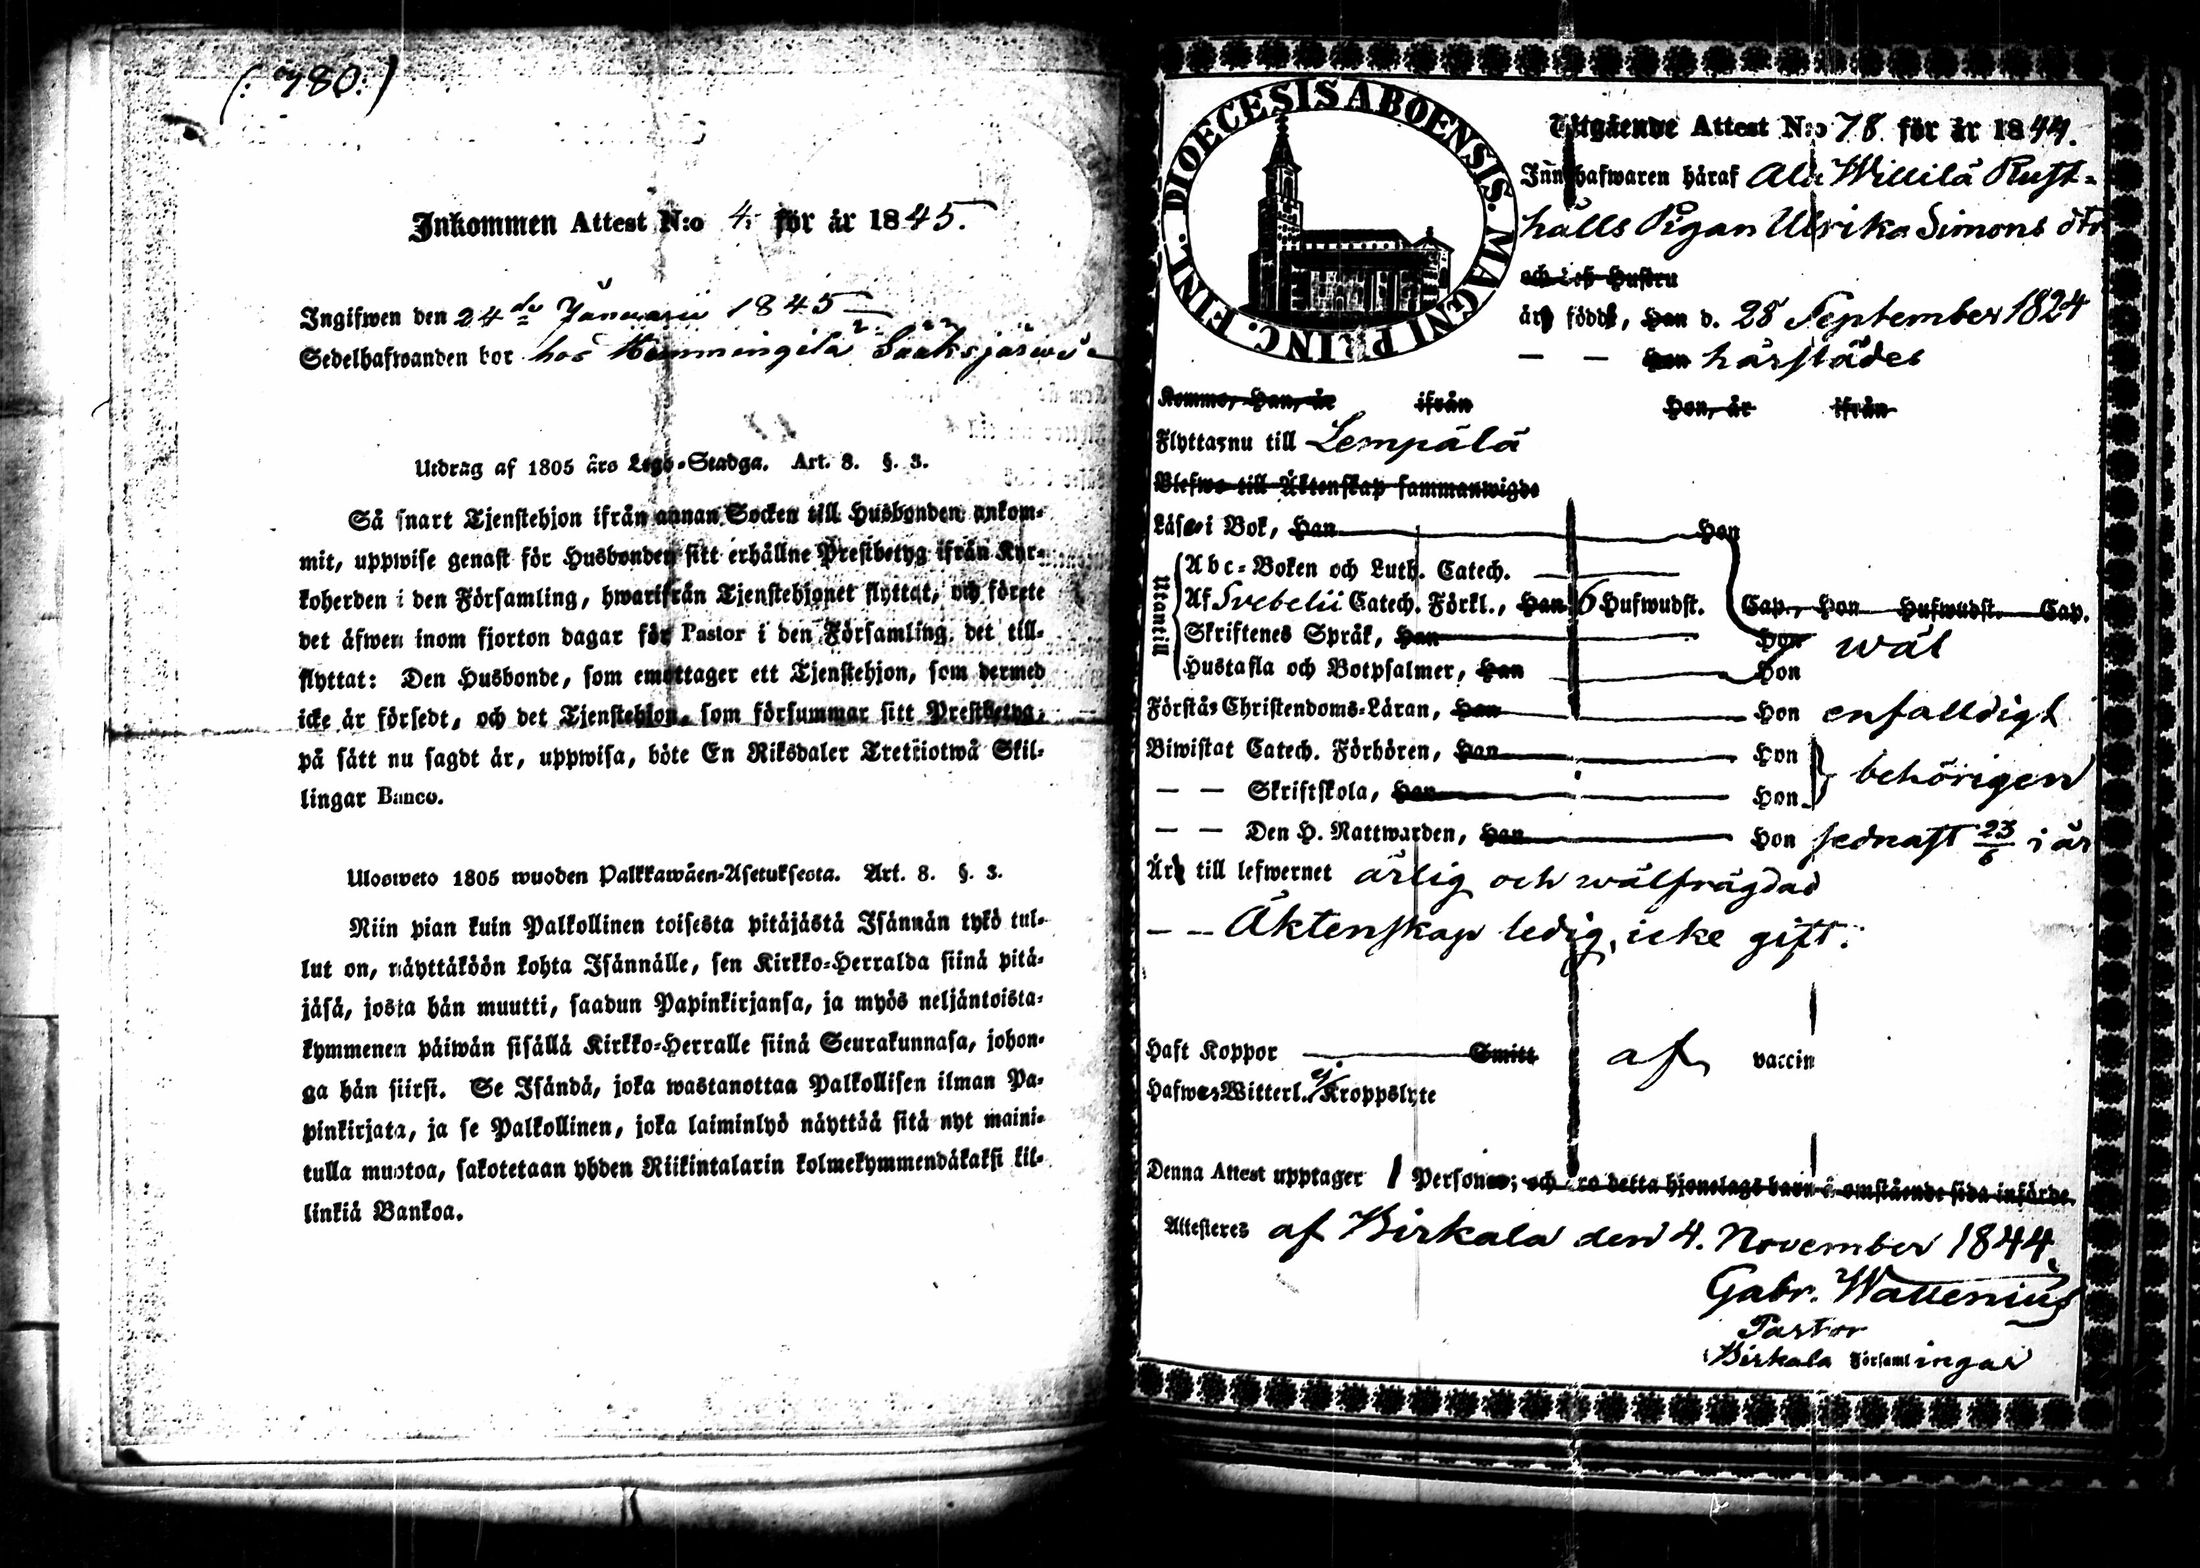 (: 780:)
Inkommen Attest N:o 4. för år 1845.
Ingifwen den 24de Januarii 1845
Sedelhafwanden bor hos Hemmingilä Sääksjärwi
Utdrag af 1805 års Lego-Stadga. Art. 8. §. 3.
Så snart Tjenstehjon ifrån annan Socken till Husbonden ankom-
mit, uppwise genast för Husbonden sitt erhållne Prestbetyg ifrån Kyr-
koherden i den Församling, hwarifrån Tjenstehjonet flyttat, och förete
det äfwen inom fjorton dagar för Pastor i den Församling, det till-
flyttat: Den Husbonde, som emottager ett Tjenstehjon, som dermed
icke är försedt, och det Tjenstehjon, som försummar sitt Prestbetyg,
på sätt nu sagdt är, uppwisa, böte En Riksdaler Trettiotwå Skil-
lingar Banco.
Ulosweto 1805 wuoden Palkkawäen-Asetuksesta. Art. 8. §. 3.
Niin pian kuin Palkollinen toisesta pitäjästä Isännän tykö tul-
lut on, näyttäköön kohta Isännälle, sen Kirkko-Herralda siinä pitä-
jäsä, josta hän muutti, saadun Papinkirjansa, ja myös neljäntoista-
kymmenen päiwän sisällä Kirkko-Herralle siinä Seurakunnasa, johon-
ga hän siirsi. Se Isändä, joka wastanottaa Palkollisen ilman Pa-
pinkirjata, ja se Palkollinen, joka laiminlyö näyttää sitä nyt maini-
tulla muotoa, sakotetaan yhden Riikintalarin kolmekymmendäkaksi kil-
linkiä Bankoa.
DIOECESIS ABOENSIS. MAGNI PRINC. FINL.
Utgående Attest N:o 78 för år 1844.
Innehafwaren häraf Ala Willilä Rust-
hålls Pigan Ulrika Simons dtr
och des Hustru
är född, Han d. 28 September 1824
— — Hon härstädes
Kommo, Han, år ifrån Hon, år ifrån
Flyttar nu till Lempälä
Blefwo till Äktenskap sammanwigde
Läser i Bok, Han Hon
Utantill
Abc-Boken och Luth. Catech.
Af Svebelii Catech. Förkl., Han 6 Hufwudst. Cap., Hon Hufwudst. Cap.
Skriftenes Språk, Han Hon wäl
Hustafla och Botpsalmer, Han Hon
Förstår Christendoms-Läran, Han Hon enfalldigt
Biwistat Catech. Förhören, Han Hon behörigen
— — Skriftskola, Han Hon
— — Den H. Nattwarden, Han Hon sednast 23/6 i år
Är till lefwernet ärlig och wälfrägdad
— — Äktenskap ledig, icke gift.
Haft Koppor Smitt af vaccin
Hafwer Witterl. ej Kroppslyte
Denna Attest upptager 1 Person; och äro detta hjonelags barn å omstående sida införde.
Attesteres af Birkala den 4. November 1844.
Gabr. Wallenius
Pastor
i Birkala Församlingar